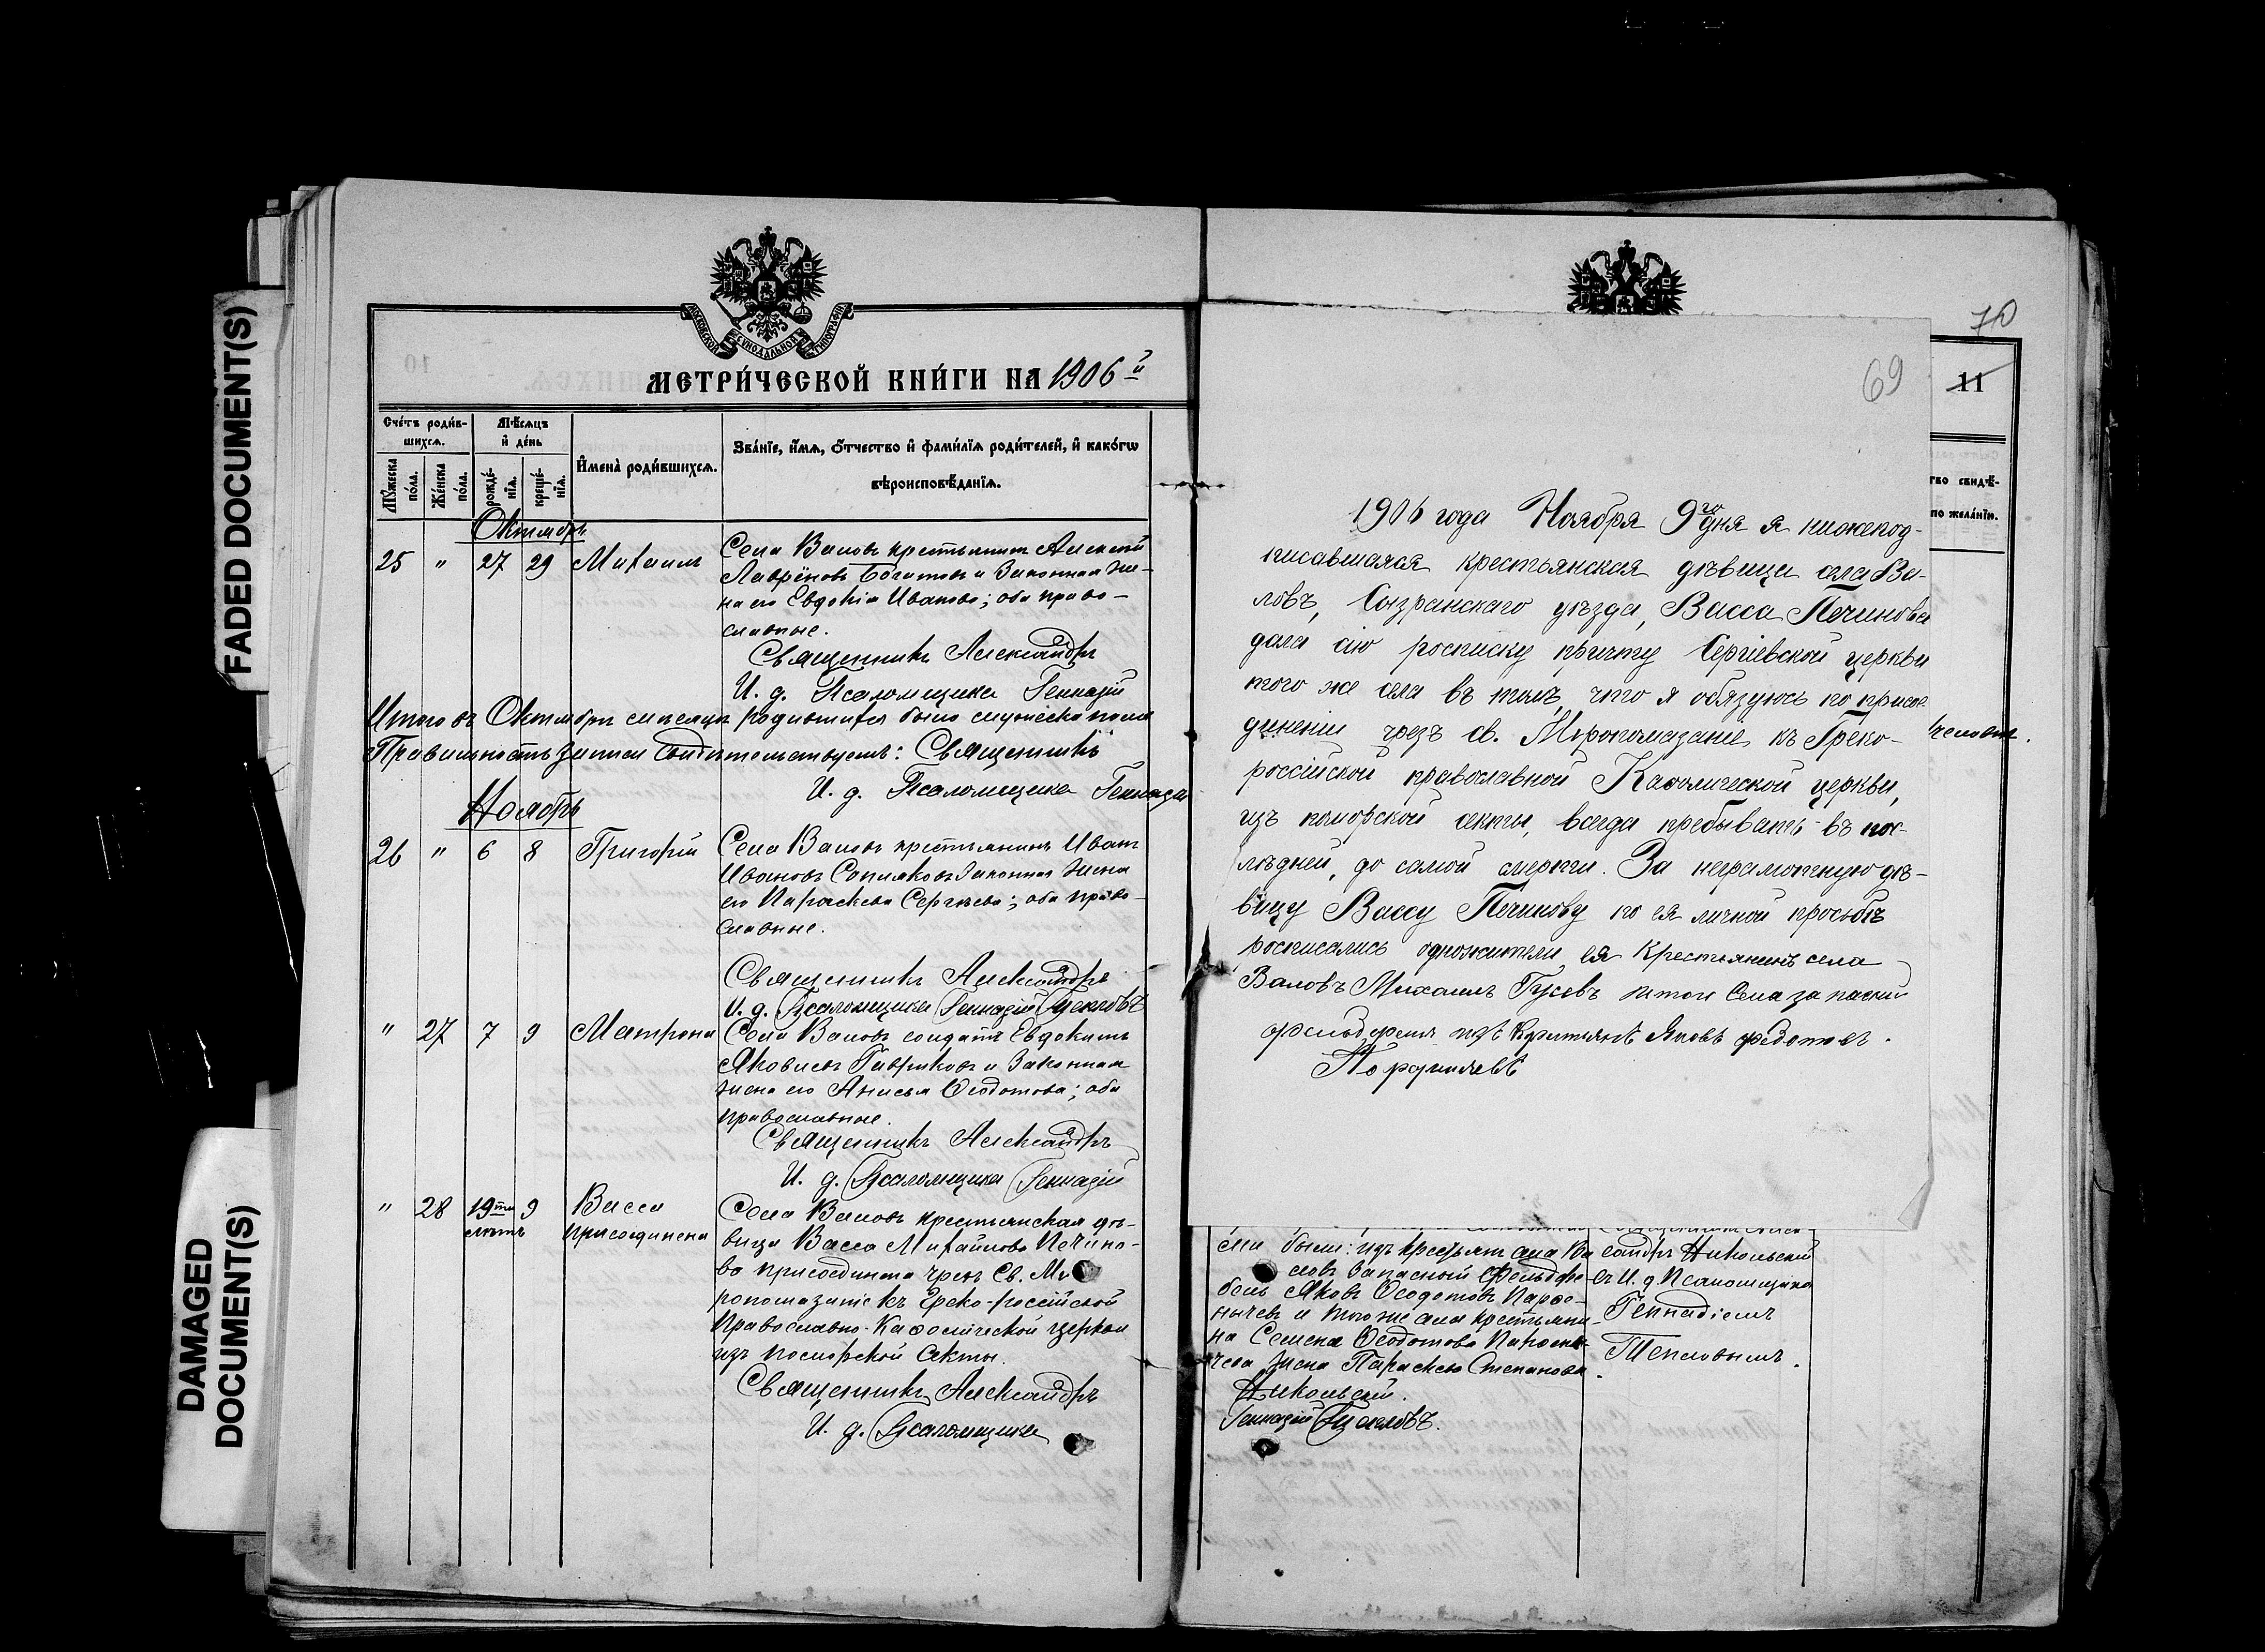 FADED DOCUMENT(S)
DAMAGED
DOCUMENT(S)
МОСКОВСКОЙ СѴНОДАЛЬНОЙ ТИПОГРАФІИ
МЕТРИ́ЧЕСКОЙ КНИ́ГИ НА 1906й
Сче́тъ роди́в-
шихсѧ.
Мѣ́сѧцъ
и҆ де́нь
Мꙋ́жеска
по́ла.
Же́нска
по́ла.
рожде́-
нїѧ.
креще́-
нїѧ.
И҆мена̀ роди́вшихсѧ.
Зва́нїе, и҆́мѧ, ѻ҆́тчество и҆ фами́лїѧ роди́телей, и҆ како́гѡ
вѣроисповѣ́данїѧ.
Октябрь
25 " 27 29 Михаилъ
Села Валовъ крестьянинъ Алексѣй
Лаврёновъ Богатовъ и Законная же-
на его Евдокія Иванова; оба право-
славные.
Священникъ Александръ
И. д. Псаломщика Геннадій
Итого въ Октябрѣ мѣсяцѣ родившихся было мужеска пола
Правильность записи свидѣтельствуемъ: Священникъ
И. д. Псаломщика Геннадій
Ноябрь
26 " 6 8 Григорій
Села Валовъ крестьянинъ Иванъ
Ивановъ Сапляковъ Законная жена
его Параскева Сергѣева; оба право-
славные.
Священникъ Александръ
И. д. Псаломщика Геннадій Тепловъ
" 27 7 9 Матрона
Села Валовъ солдатъ Евдокимъ
Яковлевъ Гавриковъ и Законная
жена его Анисья Ѳеодотова; оба
православные.
Священникъ Александръ
И. д. Псаломщика Геннадій
" 28 19ти лѣтъ 9 Васса
присоединена
Села Валовъ крестьянская дѣ-
вица Васса Михайлова Печино-
ва присоединена чрезъ Св. Мѵ
ропомазаніе къ Греко-россійской
Православно-Каѳолической церкви
изъ поморской секты.
Священникъ Александръ
И. д. Псаломщика
70
69
11
тво свидѣ́-
по жела́нїю.
человѣкъ.
1906 года Ноября 9го дня я нижепод-
писавшаяся крестьянская дѣвица села Ва-
ловъ, Сызранскаго уѣзда, Васса Печинова
дала сію росписку причту Сергіевской церкви
того же села въ томъ, что я обязуюсь по присое
диненіи чрезъ св. Мѵропомазаніе къ Греко-
россійской православной Каѳолической церкви,
изъ поморской секты, всегда пребывать въ пос-
лѣдней, до самой смерти. За неграмотную дѣ-
вицу Вассу Печинову по ея личной просьбѣ
росписались одножители ея Крестьянинъ села
Валовъ Михаилъ Гусевъ итои Села запасный
фельдфебель изъ Крестьянъ Яковъ Федотовъ
ели были: изъ крестьян села Ва
ловъ Запасный Фельдфе-
бель Яковъ Ѳеодотовъ Парфе-
нычевъ и того же села крестьяни-
на Семена Ѳеодотова Парфены-
чева жена Параскева Степанова.
Никольскій.
Геннадій Тепловъ.
сандръ Никольскій
съ И. д Псаломщика
Геннадіемъ
Тепловымъ.